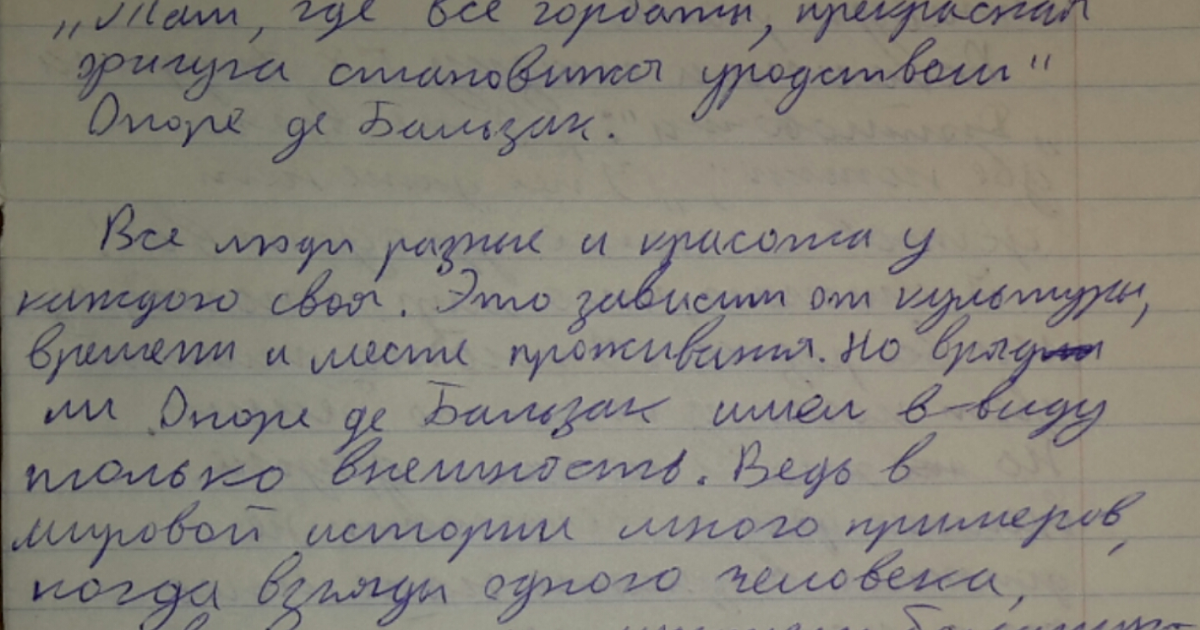 „Там, где все горбаты, прекрасная
фигура становится уродством"
Оноре де Бальзак.
Все люди разные и красота у
каждого своя. Это зависит от культуры,
времени и места проживания. Но вряд
ли Оноре де Бальзак имел в виду
только внешность. Ведь в
мировой истории много примеров,
когда взгляды одного человека,